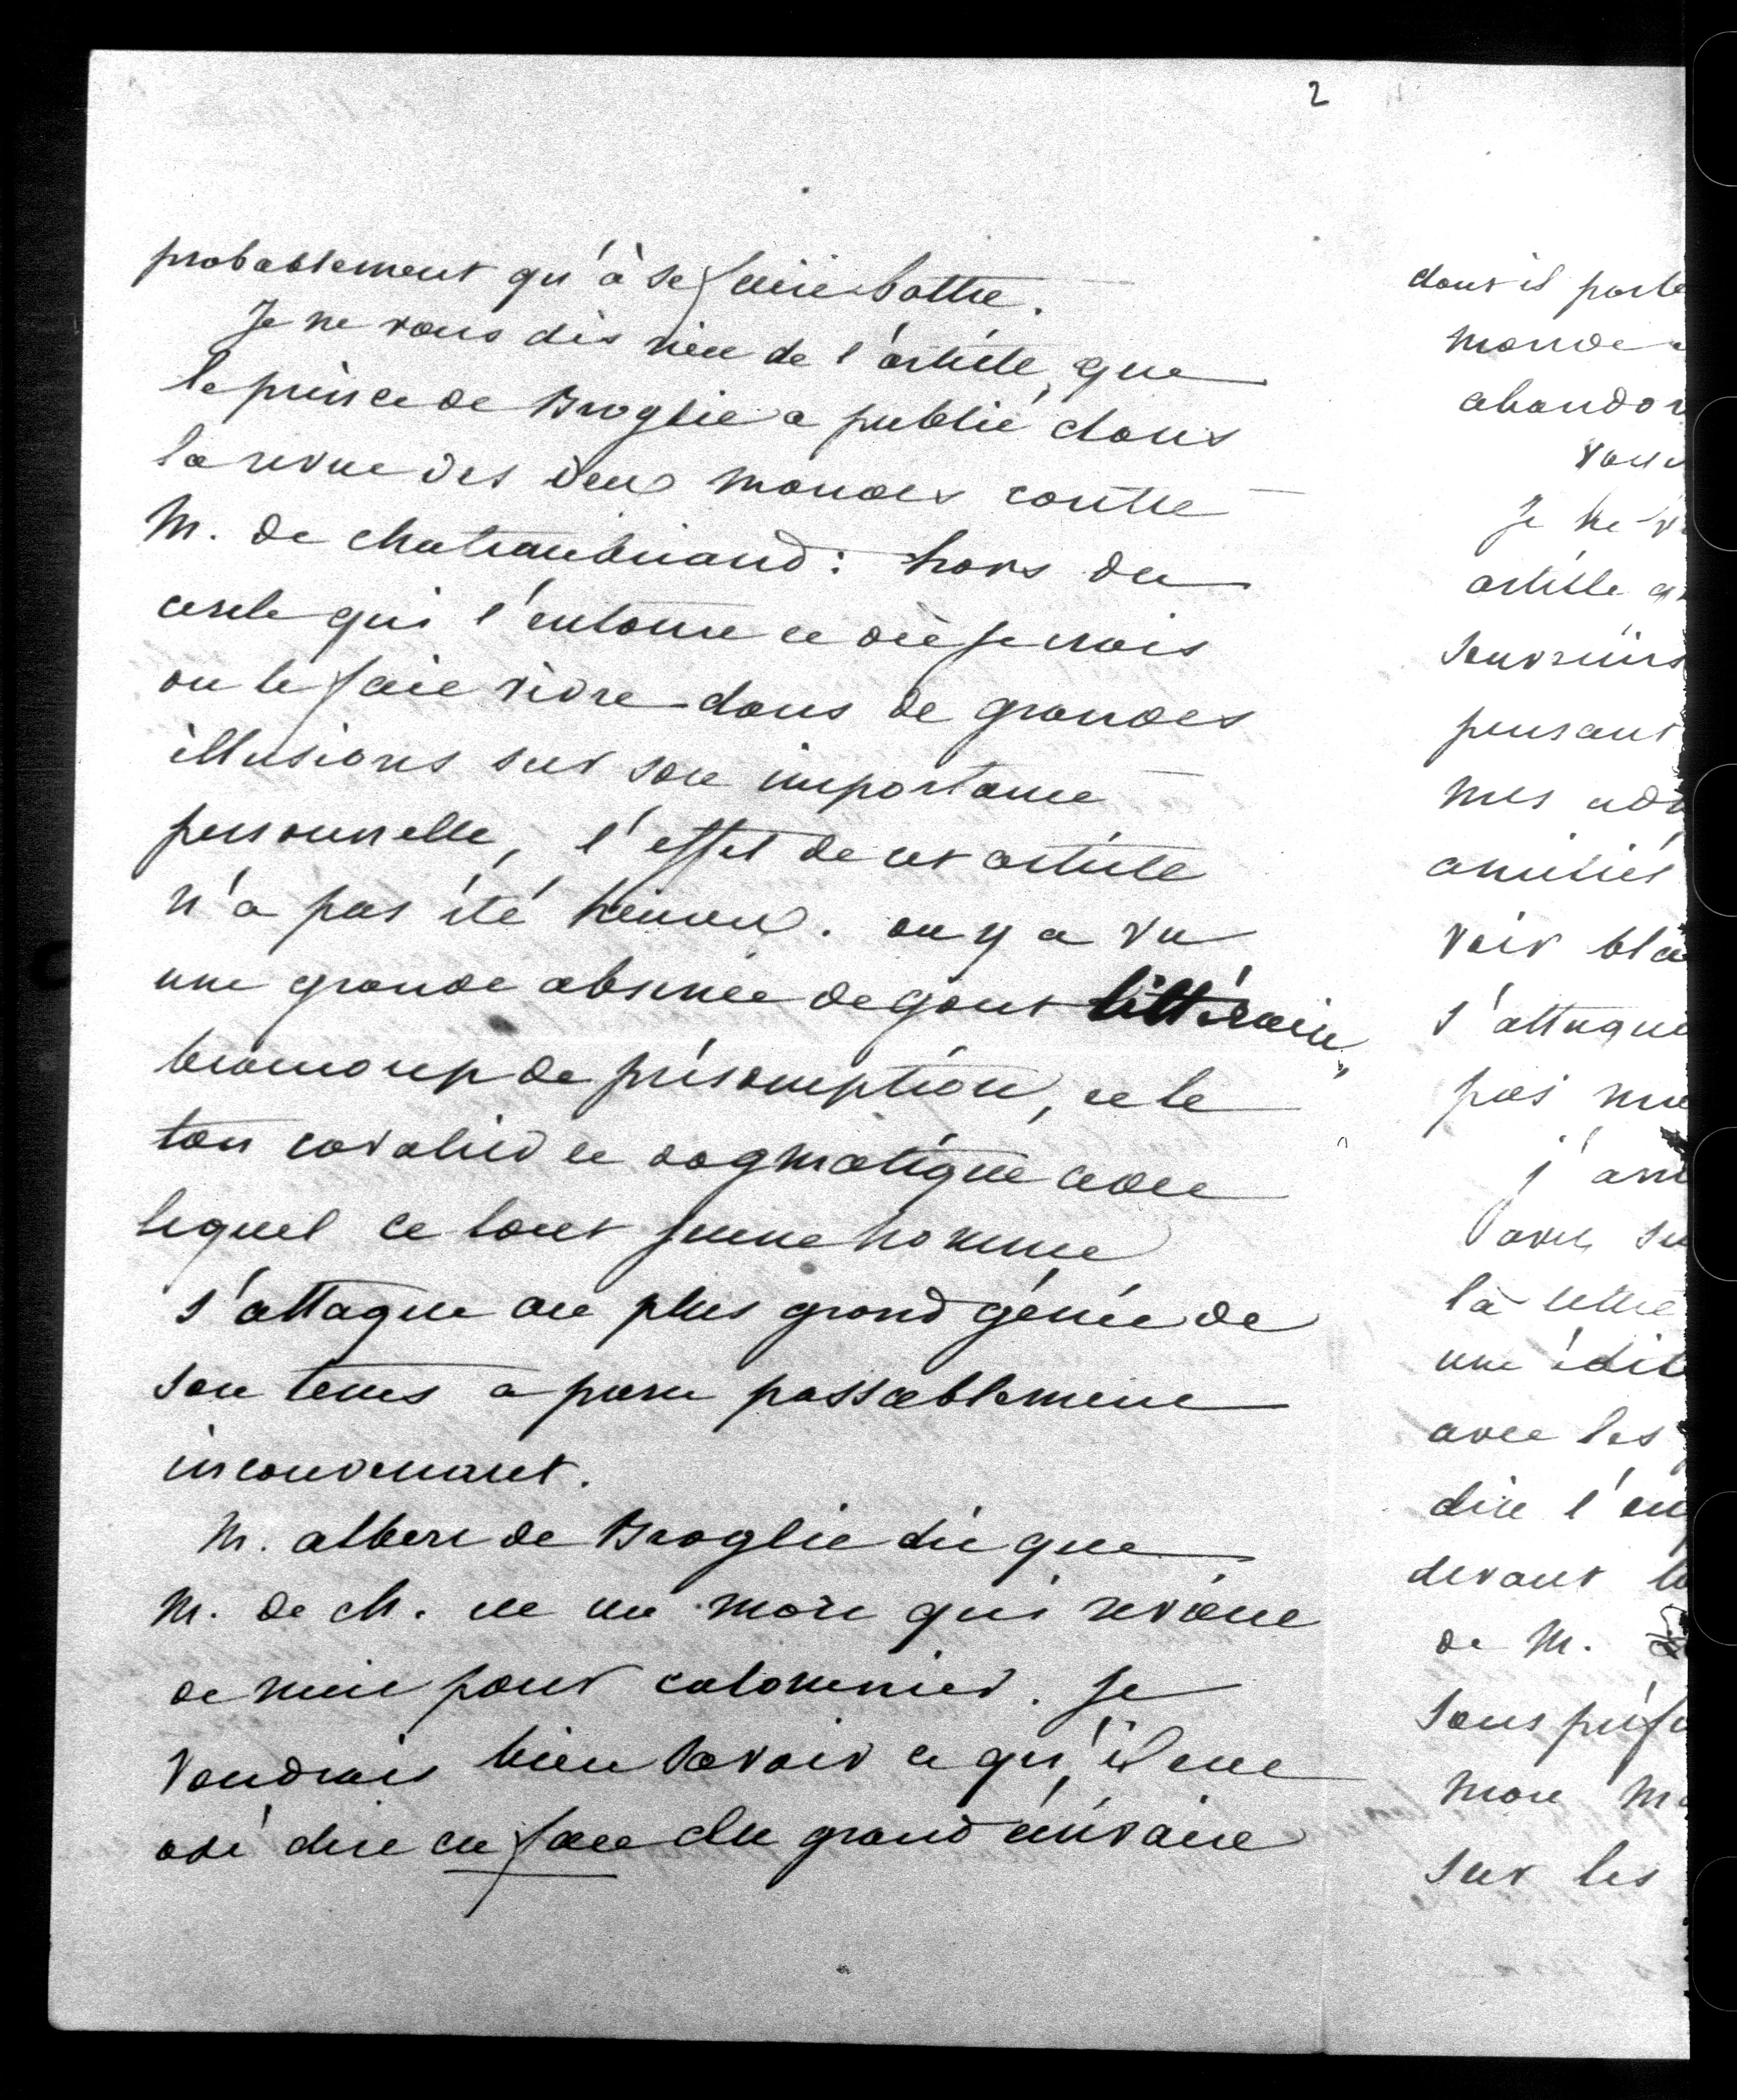 2
probablement qu'à se faire battre.
Je ne vous dis rien de l'article, que
le prince de Broglie a publié dans
la revue des deux mondes contre
M. de chateaubriand : hors du
cercle qui l'entoure et où je crois
on le fait vivre dans de grandes
illusions sur son importance
personnelle, l'effet de cet article
n'a pas été heureux. on y a vu
une grande absence de gout littéraire,
beaucoup de présomption, et le
ton cavalier et dogmatique avec
lequel ce tout jeune homme
s'attaque au plus grand génie de
son tems a paru passablement
inconvenant.
M. albert de Broglie dit que
M. de ch. est un mort qui revient
de nuit pour calomnier. Je
voudrais bien savoir ce qu'il eut
osé dire en face du grand écrivain
dont il parle
monde
abandon
vous
Je ne v
article q
souvenirs
pensant
mes ado
amitiés
voir bla
s'attaque
pas mu
j'ani
avec su
la lettre
une édit
avec les
dire l'en
devant le
de M.
sans préf
mon m
sur les